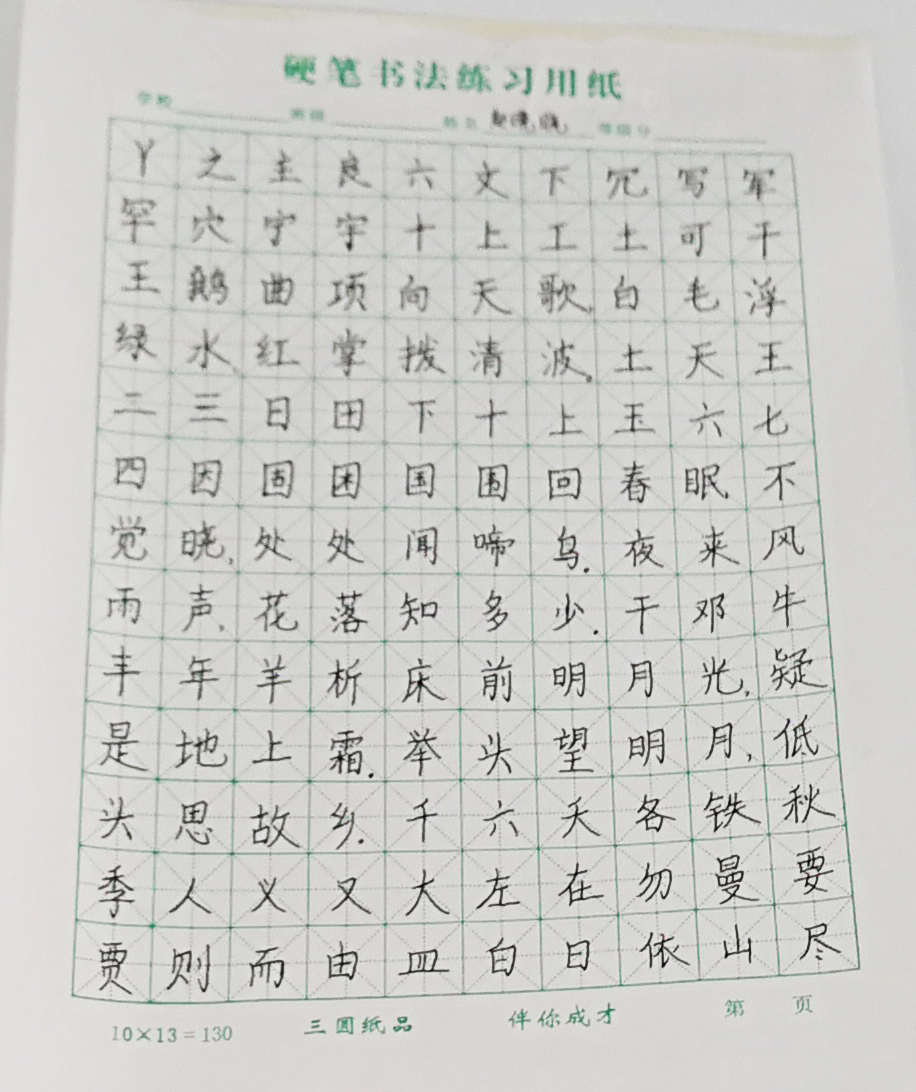 硬笔书法练习用纸
学校 班级 姓名 等级分
丫之主良六文下冗写军
罕穴宁字十上工土可干
王鹅曲项向天歌,白毛浮
绿水,红掌拨清波。土天王
二三日田下十上玉六七
四因固困国围回春眠,不
觉晓,处处闻啼鸟.夜来风
雨声,花落知多少.干邓牛
丰年羊析床前明月光,疑
是地上霜.举头望明月,低
头思故乡.千六夭各铁秋
季人义又大左在勿曼要
贾则而由皿白日依山尽
10×13=130 三圆纸品 伴你成才 第 页